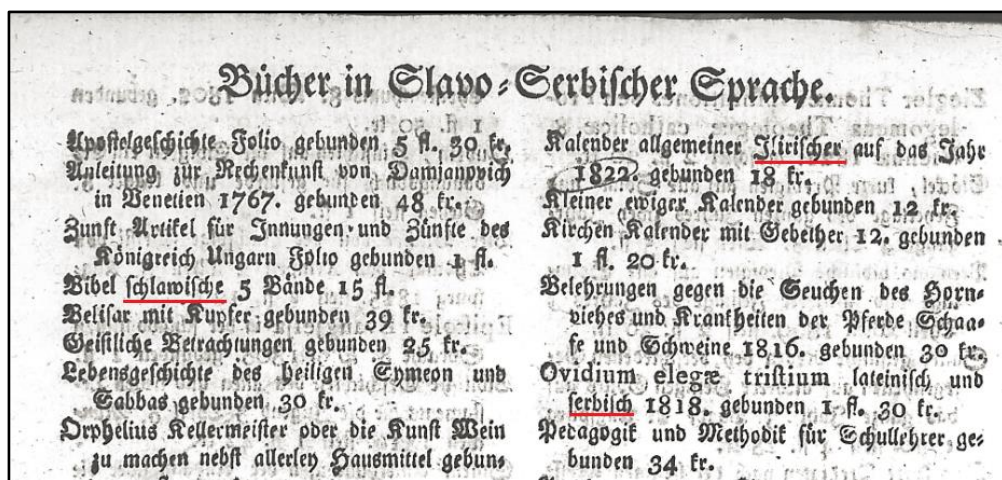 Bücher in Slavo-Serbischer Sprache.
Apostelgeschichte Folio gebunden 5 fl. 30 kr.
Anleitung zur Rechenkunst von Damjanovich
in Venetien 1767. gebunten 48 kr.
Zunft Artikel für Innungen und Zünfte des
Königreich Ungarn Folio gebunden 1 fl.
Bibel schlawische 5 Bände 15 fl.
Belisar mit Kupfer gebunden 39 kr.
Geistliche Betrachtungen gebunden 25 kr.
Lebensgeschichte des heiligen Symeon und
Sabbas gebunden 30 kr.
Orphelius Kellermeister oder die Kunst Wein
zu machen nebst allerley Hausmittel gebun-
Kalender allgemeiner Illirischer auf das Jahr
1822. gebunden 18 kr.
Kleiner ewiger Kalender gebunden 12 kr.
Kirchen Kalender mit Gebether 12. gebunden
1 fl. 20 kr.
Belehrungen gegen die Seuchen des Horn-
viehes und Krankheiten der Pferde Schaa-
fe und Schweine 1816. gebunden 30 kr.
Ovidium elegæ tristium lateinisch und
serbisch 1818. gebunden 1 fl. 30 kr.
Pedagogik und Methodik für Schullehrer ge-
bunden 34 kr.